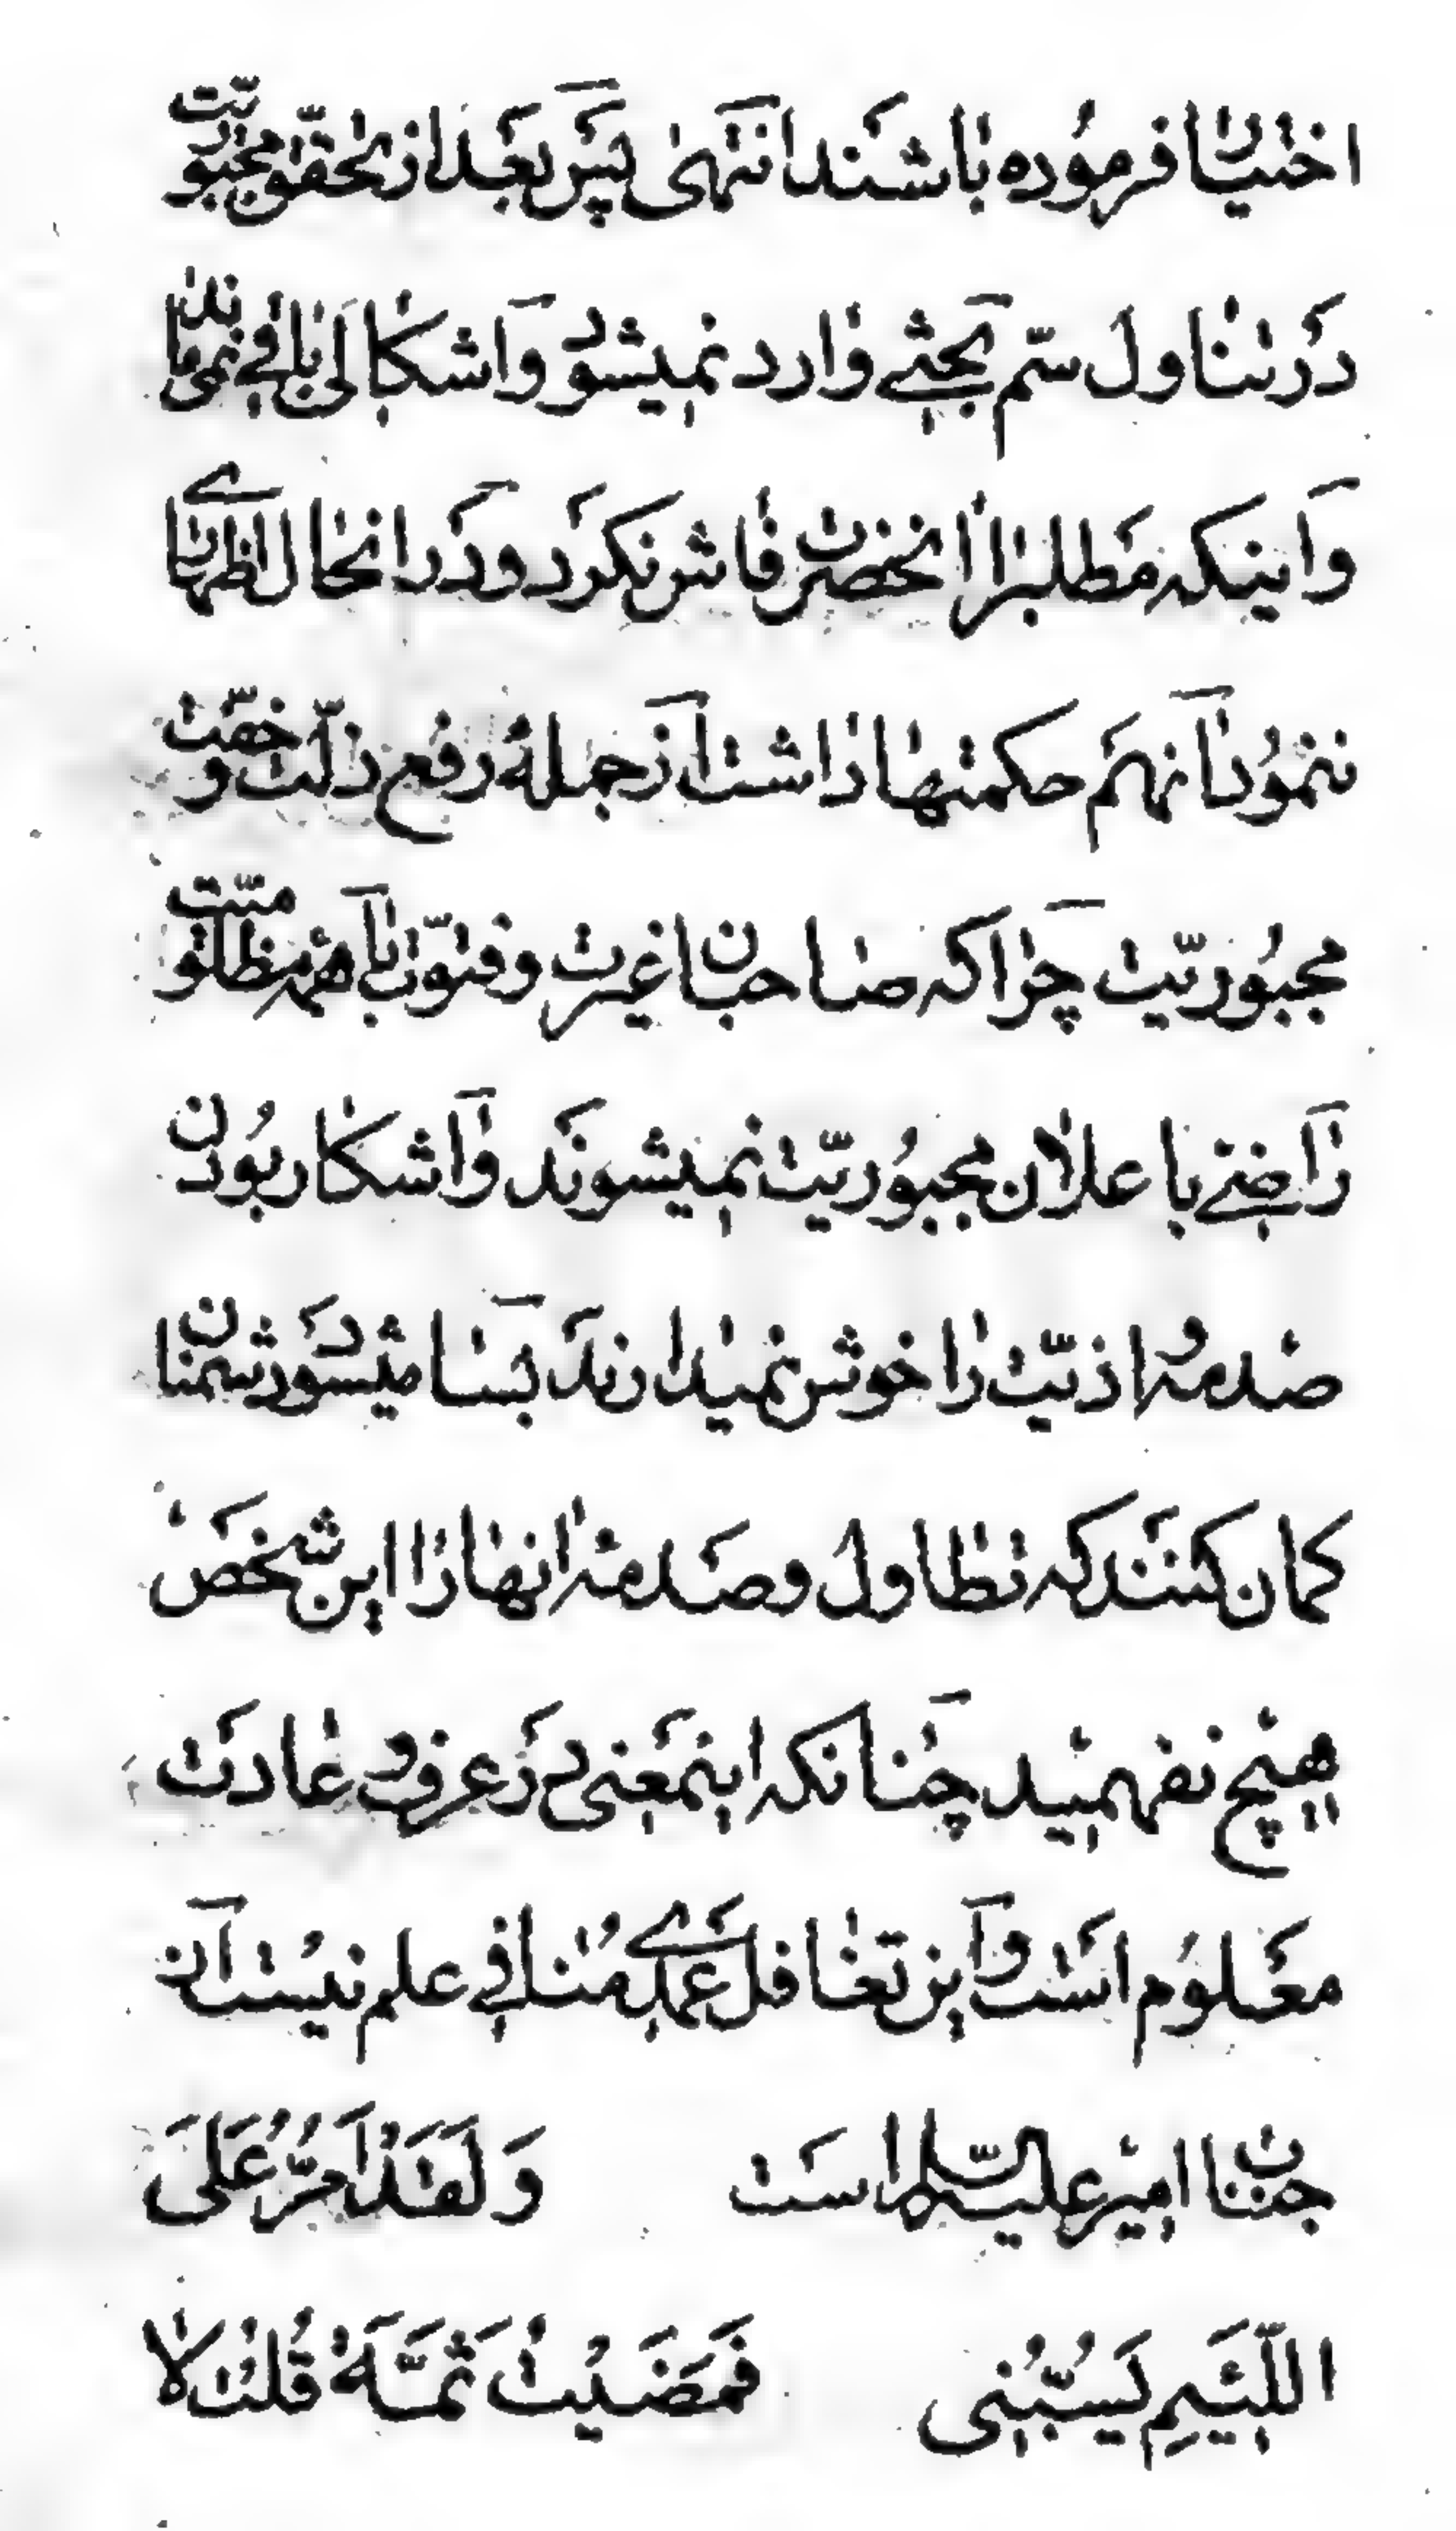 اختیار فرموده باشند انتهی پس بعد از تحقق مجبوریت
در تناول سم بحثی وارد نمیشود و اشکالی باقی نمی ماند
و اینکه مطلب را آنحضرت فاش نکرد و در آنحال اظهاری
ننمود آنهم حکمتها داشت از جمله رفع ذلت و خفت
مجبوریت چرا که صاحبان غیرت و فتوت با همه مظلومیت
راضی باعلان مجبوریت نمیشوند و آشکار بودن
صدمه و اذیت را خوش نمیدارند بسا میشود دشمنان
کمان کنند که تطاول و صدمه آنها را این شخص
هیچ نفهمید چنانکه اینمعنی در عرف و عادت
معلوم است و این تغافل عمدی منافی علم نیست از
جناب امیر علیه السلام است وَلَقَدْ اَمُرُّ عَلَی
اللَّئِیمِ یَسُبُّنِی فَمَضَیْتُ ثَمَّةَ قُلْتُ لا